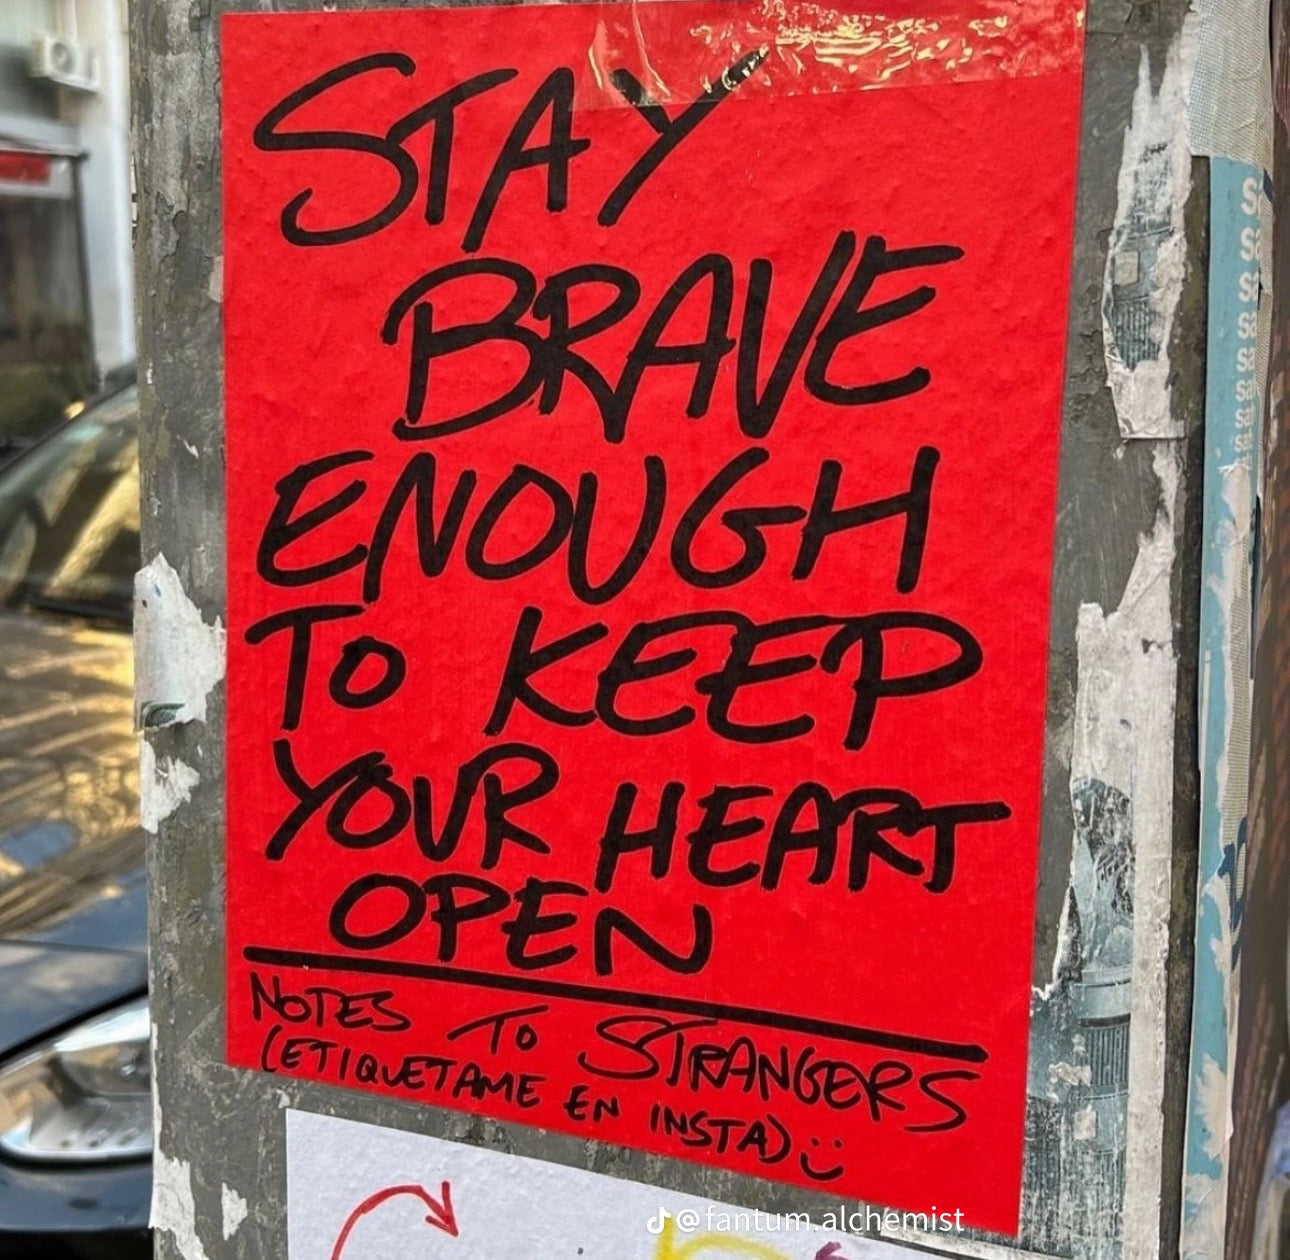 STAY
BRAVE
ENOUGH
TO KEEP
YOUR HEART
OPEN
NOTES TO STRANGERS
(ETIQUETAME EN INSTA)
@fantum.alchemist